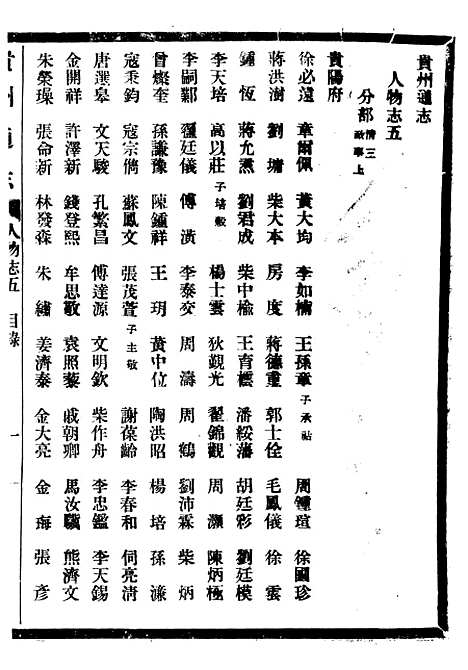 貴州通志
人物志五
分部 清三 政事上
貴陽府
徐必遠 章爾佩 黃大均 李如楠 王孫章 子承祜 周鍾瑄 徐國珍
蔣洪澍 劉墉 柴大本 房度 蔣德重 郭士佺 毛鳳儀 徐雲
鍾恆 蔣允焄 劉君成 柴中楡 王育櫄 潘綏藩 胡廷彩 劉廷模
李天培 高以莊 子培穀 楊士雲 狄覲光 翟錦觀 周灝 陳炳極
李嗣鄴 翟廷儀 傅潢 李泰交 周濤 周鶴 劉沛霖 柴炳
曾燦奎 孫謙豫 陳鍾祥 王玥 黃中位 陶洪昭 楊培 孫濂
寇秉鈞 寇宗儁 蘇鳳文 張茂萱 子主敬 謝葆齡 李春和 伺亮清
唐選皋 文天駿 孔繁昌 傅達源 文明欽 柴作舟 李忠鑑 李天錫
金開祥 許澤新 錢登熙 牟思敬 袁照藜 戚朝卿 馬汝驥 熊濟文
朱榮璪 張命新 林發森 朱繡 姜濟泰 金大亮 金海 張彥
貴州通志 人物志五 目錄 一